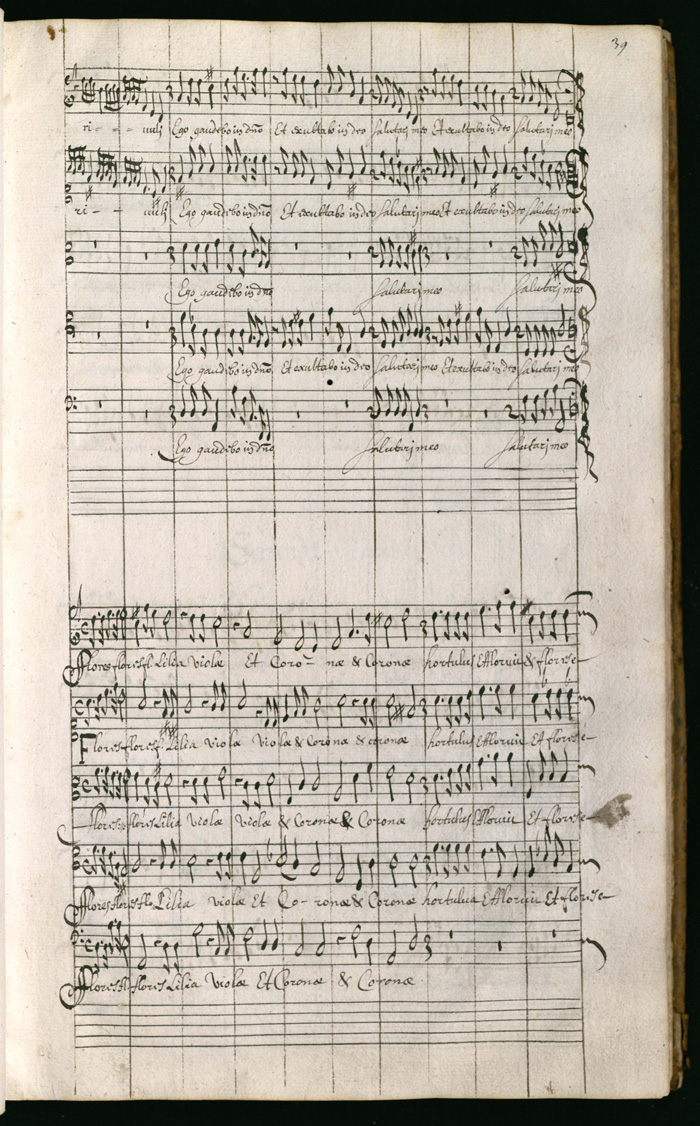 39
ri - - uulj Ego gaudebo in dño Et exultabo in deo salutarj meo Et exultabo in deo salutarj meo
ri - - uulj Ego gaudebo in dño Et exultabo in deo salutarj meo Et exultabo in deo salutarj meo
Ego gaudebo in dño salutarj meo salutarj meo
Ego gaudebo in dño Et exultabo in deo salutarj meo Et exultabo in deo salutarj meo
Ego gaudebo in dño salutarj meo salutarj meo
Flores flores fl. Lilia violæ Et Coro - næ & Coronæ hortulus Effloruit & flores e-
Flores flores f. Lilia violæ violæ & Corona & coronæ hortulus Effloruit Et flores e-
flores flores Lilia violæ violæ & Coronæ & Coronæ hortulus Effloruit Et flores e-
Flores flores flo Lilia violæ Et Co - ronæ & Coronæ hortulus Effloruit Et flores e-
Flores fl. flores Lilia violæ Et Coronæ & Coronæ